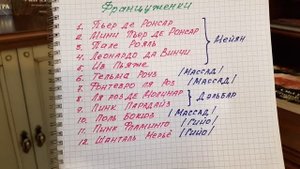 Француженки
1. Пьер де Ронсар
2. Мини Пьер де Ронсар
3. Пале Рояль
4. Леонардо да Винчи
5. Ив Пьяже
Мейян
6. Тельма Роуз /Массад/
7. Фонтевро ля Роз /Массад/
8. Ля роз де Молинар
9. Пинк Парадайз
Дельбар
10. Поль Бокюз /Массад/
11. Пинк Фламинго /Гийо/
12. Шанталь Мерьё /Гийо/